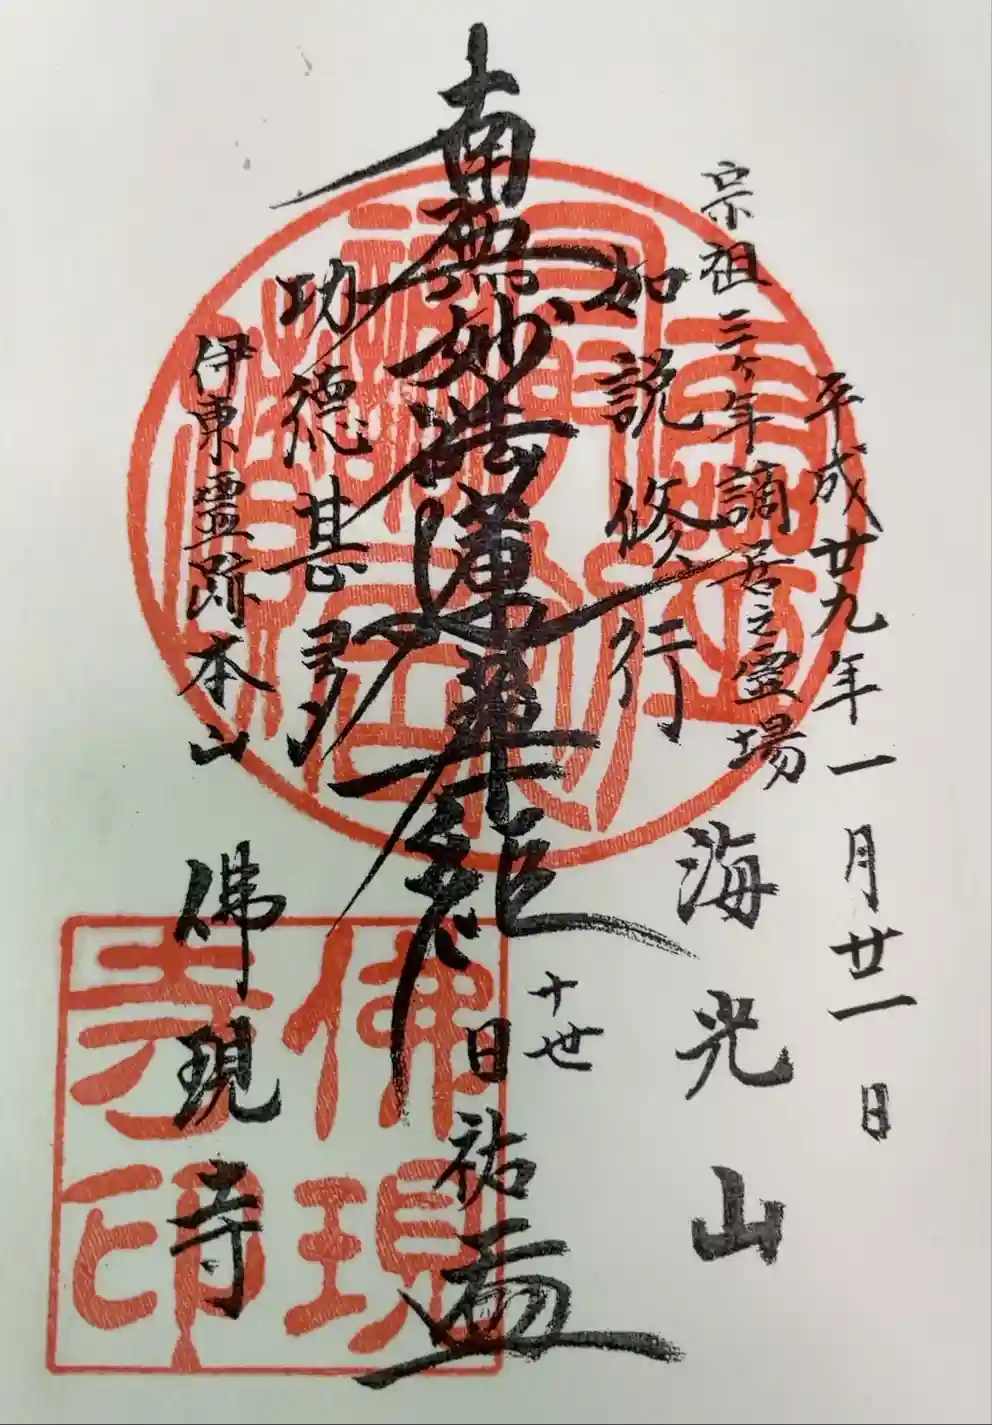 平成廿九年一月廿一日
宗祖三ヶ年謫居之霊場
海光山
如説修行
南無妙法蓮華経
十世
日祐
功徳甚多
伊東霊跡本山
佛現寺
佛現
寺印